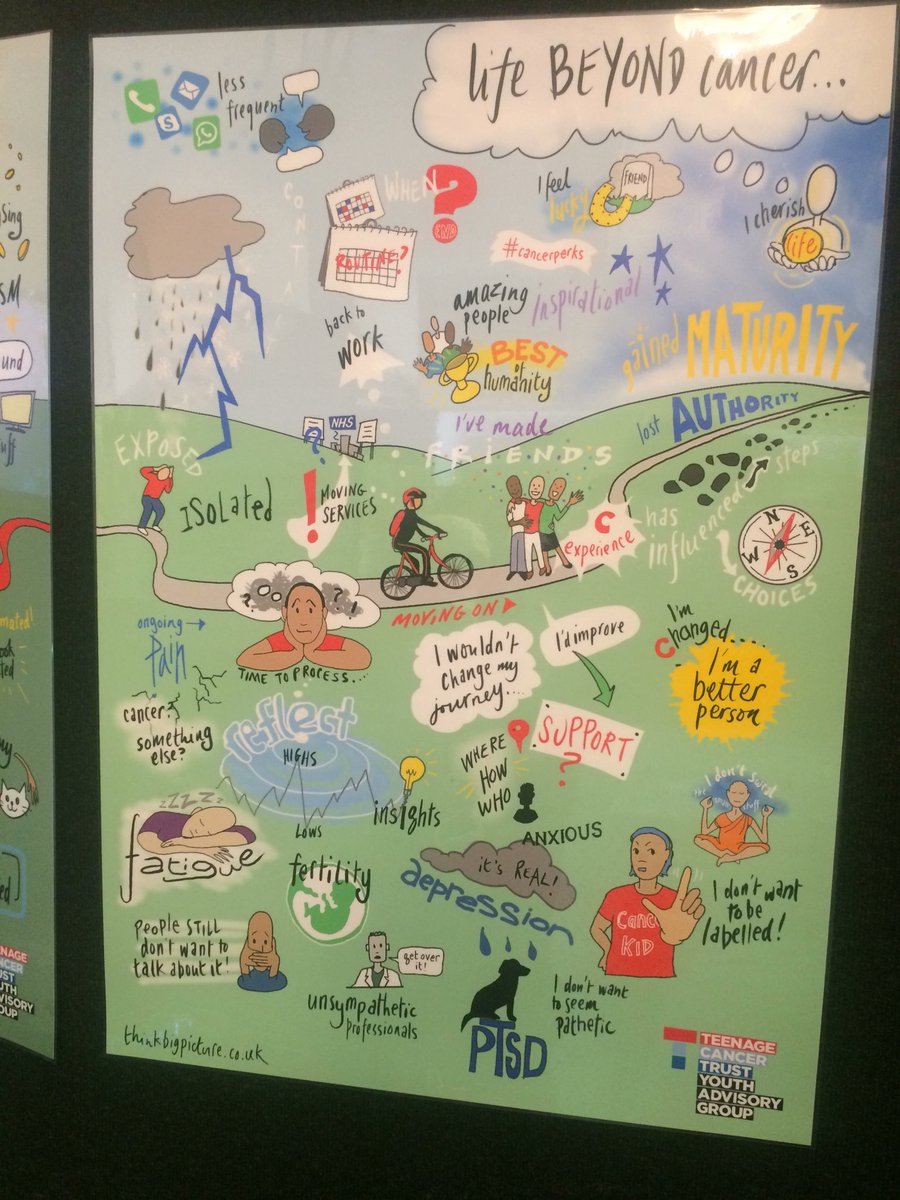 life BEYOND cancer...
less
frequent
CONTA
WHEN?
END
ROUTINE?
back to
work
I feel
lucky
FRIEND
I cherish
life
#cancerperks
amazing
people
inspirational
BEST
of
humanity
+
gained MATURITY
lost AUTHORITY
I've made
FRIENDS
NHS
?
EXPOSED
ISOLATED
!
MOVING
SERVICES
C
experience
has
influenced
steps
CHOICES
N
E
S
W
MOVING ON
ongoing
Pain
TIME TO PROCESS...
I wouldn't
change my
journey...
I'd improve
I'm
changed....
I'm a
better
person
cancer?
something
else?
reflect
HIGHS
LOWS
insights
WHERE
HOW
WHO
SUPPORT
?
ZZZZ
fatigue
fertility
ANXIOUS
it's REAL!
depression
I don't
stuff
Cance
KID
I don't want
to be
labelled!
PEOPLE STILL
don't want to
talk about it!
get over
it!
unsympathetic
professionals
PTSD
I don't want
to seem
pathetic
thinkbigpicture.co.uk
TEENAGE
CANCER
TRUST
YOUTH
ADVISORY
GROUP
sing
SM
und
uff
mated!
ook
ted
my
ed
ENAGE
NCER
UST
UTH
VISORY
OUP